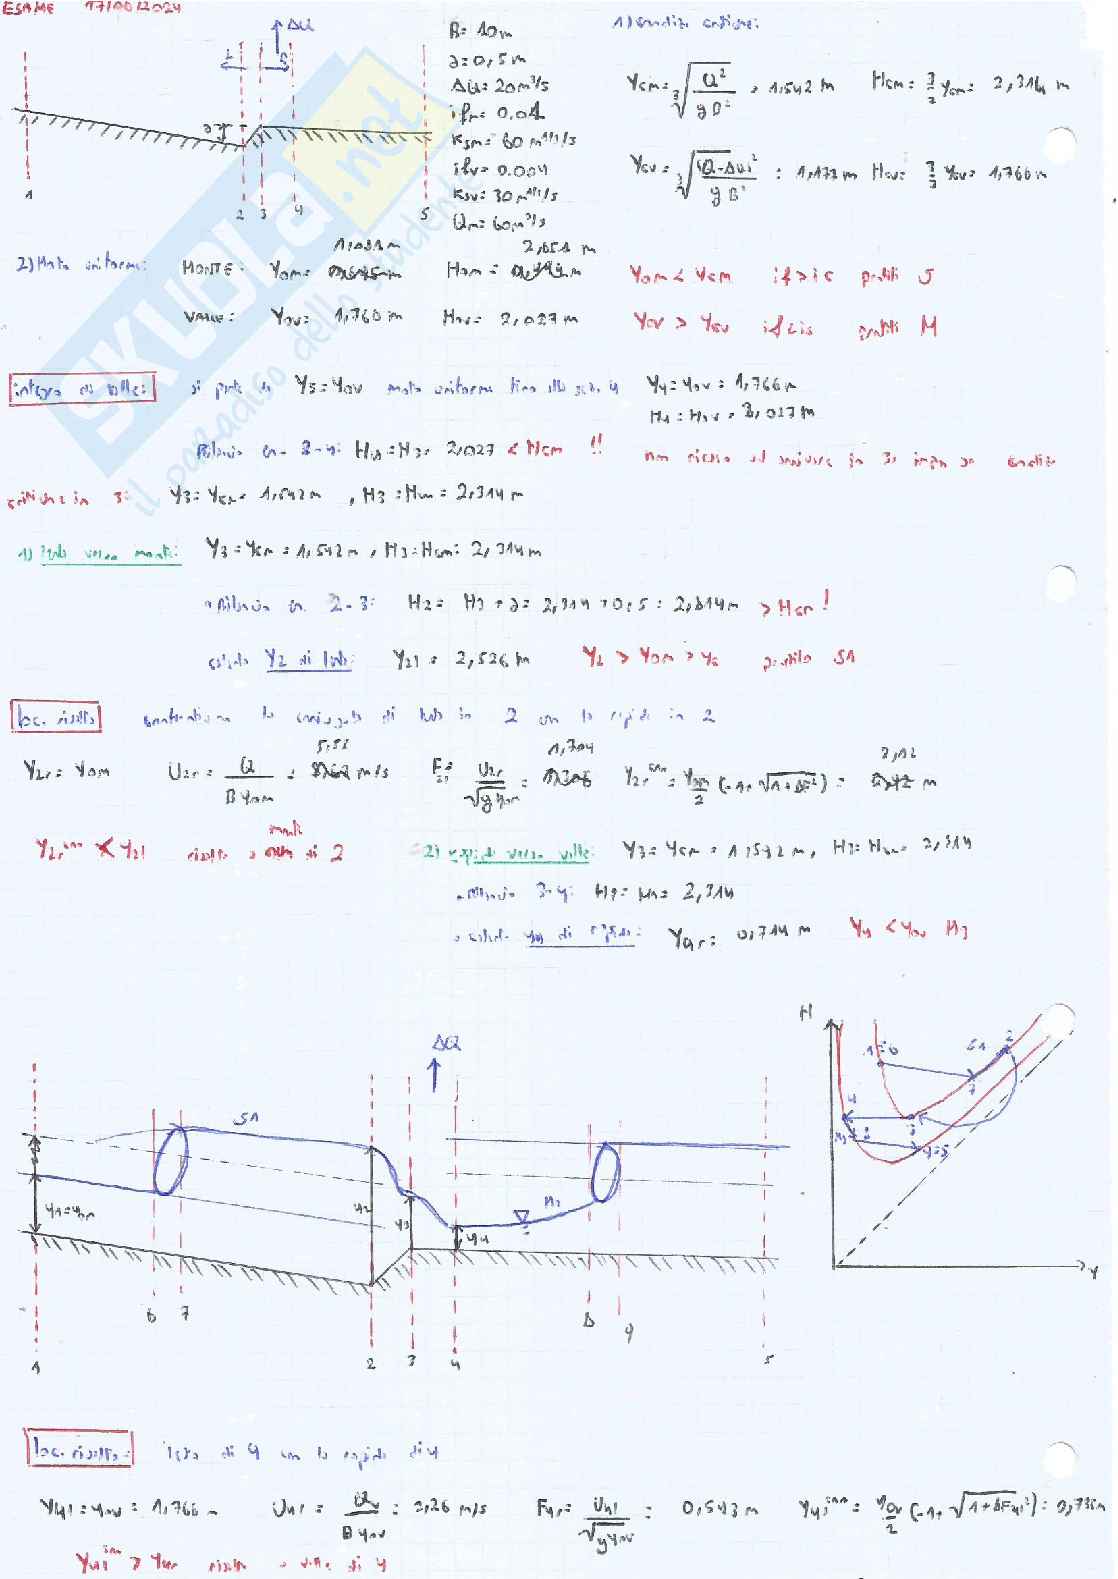 ESAME 17/06/2024
ΔQ
B = 10 m
a = 0,5 m
ΔQ = 20 m³/s
ifm = 0.01
Ksm = 60 m^1/3/s
ifv = 0.004
Ksv = 30 m^1/3/s
Qm = 60 m³/s
1) analisi critiche:
Ycm = ∛(Q²/gB²) = 1,542 m Hcm = 3/2 Ycm = 2,314 m
Ycv = ∛((Q-ΔQ)²/gB²) = 1,177 m Hcv = 3/2 Ycv = 1,766 m
1 2 3 4 5
2) Moto uniforme: MONTE: Yom = 1.081 m Hom = 2,651 m Yom < Ycm if > ic profili S
VALLE: Yov = 1,766 m Hov = 2,027 m Yov > Ycv if < ic profili M
integro da valle: si parte da Y5 = Yov moto uniforme fino alla sez. 4 Y4 = Yov = 1,766 m
H4 = Hov = 2,027 m
Bilancio en. 3-4: H4 = H3 = 2,027 < Hcm !! non riesco ad arrivare in 3: impongo condizioni
critiche in 3: Y3 = Ycm = 1,542 m , H3 = Hcm = 2,314 m
1) lento verso monte: Y3 = Ycm = 1,542 m , H3 = Hcm = 2,314 m
• Bilancio en. 2-3: H2 = H3 + a = 2,314 + 0,5 = 2,814 m > Hcm !
calcolo Y2 di lento: Y2l = 2,526 m Y2 > Yom > Yc profilo S1
loc. risalto confrontiamo la coniugata di lento in 2 con la rapida in 2
Y2r = Yom U2r = Q/BYom = 5,55 m/s F2r = U2r/√gYom = 1,704 Y2r^con = Yom/2 (-1+√1+8F²) = 2,12 m
Y2r^con < Y2l risalto a monte di 2
2) rapida verso valle: Y3 = Ycm = 1,542 m, H3 = Hcm = 2,314
• Bilancio 3-4: H3 = H4 = 2,314
• calcolo Y4 di rapida: Y4r = 0,714 m Y4 < Yov M3
ΔQ
S1
M3
Y1=Yom
Y2
Y3
Y4
1 6 7 2 3 4 8 9 5
H
Y
S1
loc. risalto: lenta di 4 con la rapida di 4
Y4l = Yov = 1,766 m U4l = Qv/BYov = 2,26 m/s F4l = U4l/√gYov = 0,543 m Y4l^con = Yov/2 (-1+√1+8F4l²) = 0,736 m
Y4l^con > Y4r risalto a valle di 4
SKUOLA.net
il paradiso dello studente